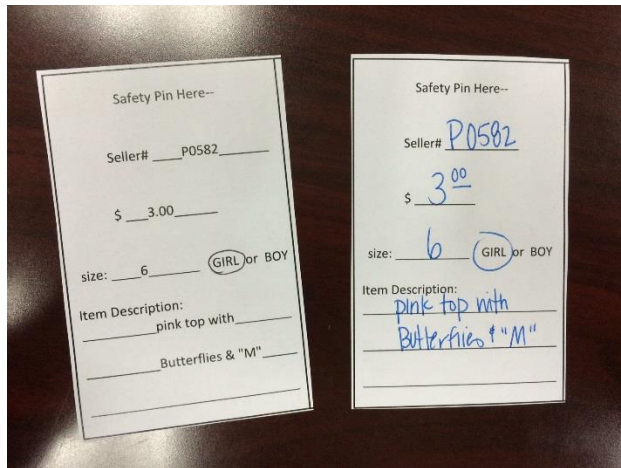 Safety Pin Here--
Seller# ____P0582________
$ ___3.00______
size: ____6_______ GIRL or BOY
Item Description:
__________pink top with________
__________Butterflies & "M"_____
Safety Pin Here--
Seller# P0582
$ 3.00
size: 6 GIRL or BOY
Item Description:
pink top with
Butterflies & "M"